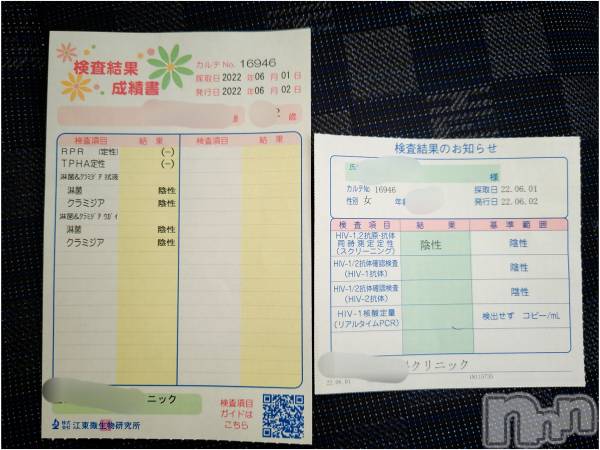 検査結果
成績書
カルテ No. 16946
採取日 2022 年 06 月 01 日
発行日 2022 年 06 月 02 日
歳
検査項目 結果 検査項目 結果
RPR (定性) (-)
TPHA定性 (-)
淋菌&クラミジア
淋菌 陰性
クラミジア 陰性
淋菌&クラミジア
淋菌 陰性
クラミジア 陰性
ニック
株式会社 江東微生物研究所
検査項目
ガイドは
こちら
検査結果のお知らせ
様
カルテNo 16946 採取日 22.06.01
性別 女 発行日 22.06.02
検査項目 結果 基準範囲
HIV-1,2抗原・抗体
同時測定定性
(スクリーニング) 陰性 陰性
HIV-1/2抗体確認検査
(HIV-1抗体) 陰性
HIV-1/2抗体確認検査
(HIV-2抗体) 陰性
HIV-1核酸定量
(リアルタイムPCR) 検出せず コピー/mL
クリニック
22.06.01